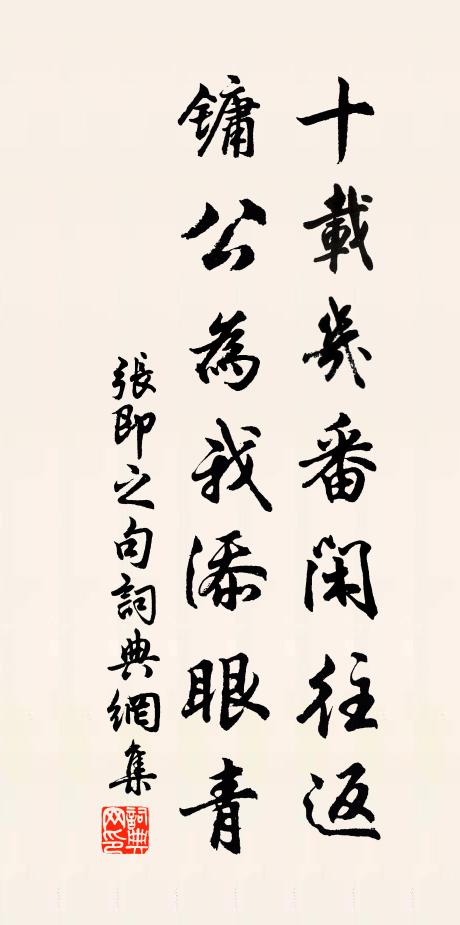 十載幾番閑往返
鏞公為我添眼青
張即之句詞典網集
詞典網印